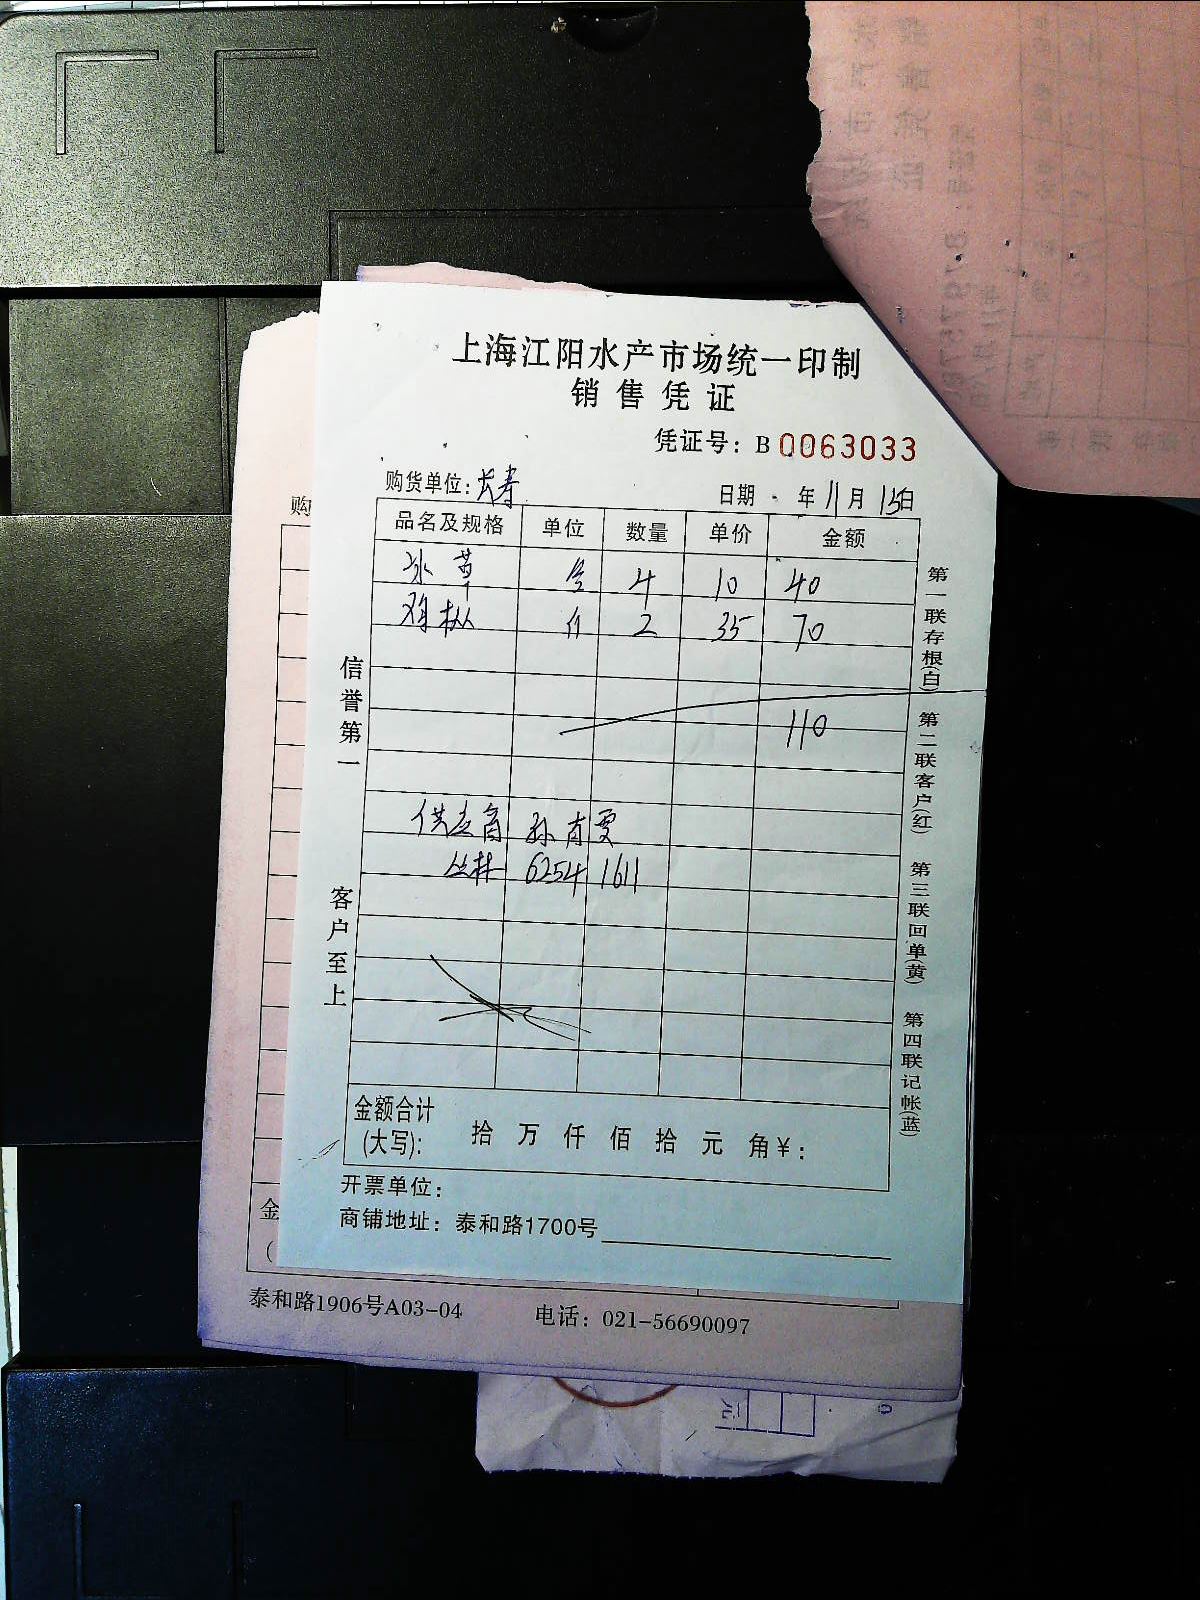 上海江阳水产市场统一印制
销售凭证
凭证号：B 0063033
购货单位：长寿 日期 年 11 月 15日
品名及规格 单位 数量 单价 金额
冰草 4 10 40
鸡枞 2 35 70
110
供应商 孙
丛林 6254 1611
信誉第一
客户至上
第一联存根(白)
第二联客户(红)
第三联回单(黄)
第四联记帐(蓝)
金额合计
(大写)： 拾 万 仟 佰 拾 元 角 ¥：
开票单位：
商铺地址：泰和路1700号
购
金
(
泰和路1906号A03-04 电话：021-56690097
元